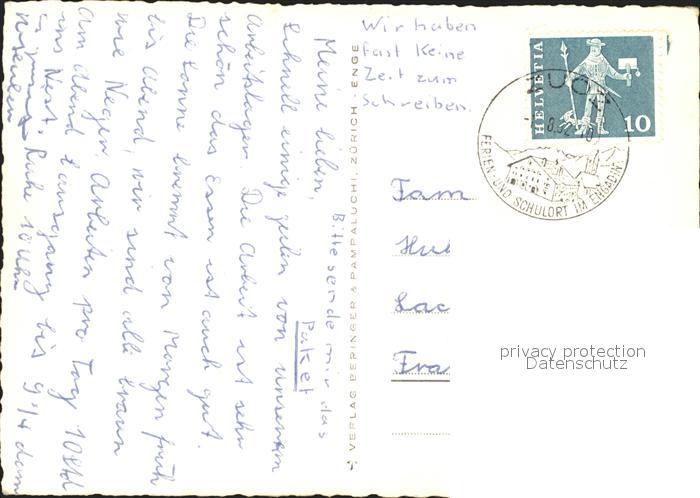 Wir haben
fast keine
Zeit zum
schreiben.
Meine lieben,
Schnell einige zeilen von unserem
Arbeitslager. Die Arbeit ist sehr
schön das Essen ist auch gut.
Die Sonne brennt von Morgen früh
bis Abend, wir sind alle braun
wie Neger. Arbeiten pro Tag 10 Std
Am Abend Ausgang bis 9 1/4 dann
ins Nest. Ruhe 10 Uhr
Bitte sende mir das
Paket
VERLAG BERINGER & PAMPALUCHI, ZÜRICH - ENGE
HELVETIA
10
ZUOZ
FERIEN- UND SCHULORT IM ENGADIN
Fam
Hu
Lac
Fra
privacy protection
Datenschutz